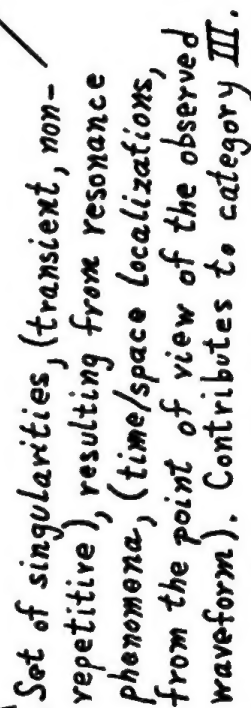 Set of singularities, (transient, non-
repetitive), resulting from resonance
phenomena, (time/space localizations,
from the point of view of the observed
waveform). Contributes to category III.